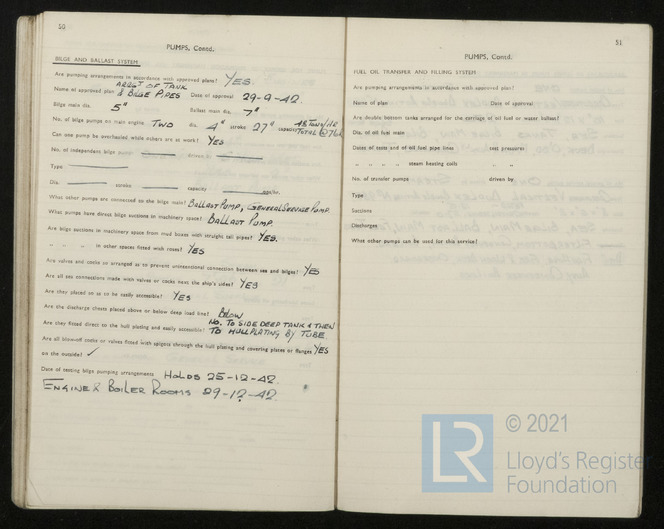 50
PUMPS, Contd.
BILGE AND BALLAST SYSTEM
Are pumping arrangements in accordance with approved plans? YES.
ARRGT OF TANK
Name of approved plan & BILGE PIPES Date of approval 29-9-42.
Bilge main dia. 5" Ballast main dia. 7"
No. of bilge pumps on main engine TWO dia. 4" stroke 27" capacity
Can one pump be overhauled while others are at work? YES
No. of independent bilge pumps driven
Type
Dia. stroke capacity
What other pumps are connected to the bilge main? BALLAST PUMP, GENERAL SERVICE PUMP.
What pumps have direct bilge suctions in machinery space? BALLAST PUMP.
Are bilge suctions in machinery space from mud boxes with straight tail pipes? YES.
" " " in other spaces fitted with roses? YES
Are valves and cocks so arranged as to prevent unintentional connection between sea and bilges? YES
Are all sea connections made with valves or cocks next the ship's sides? YES
Are they placed so as to be easily accessible? YES
Are the discharge chests placed above or below deep load line? BELOW
NO. TO SIDE DEEP TANK & THEN
Are they fitted direct to the hull plating and easily accessible? TO HULL PLATING BY TUBE
Are all blow-off cocks or valves fitted with spigots through the hull plating and covering plates or flanges YES
on the outside? ✓
Date of testing bilge pumping arrangements HOLDS 25-12-42.
ENGINE & BOILER ROOMS 29-12-42.
51
PUMPS, Contd.
FUEL OIL TRANSFER AND FILLING SYSTEM
Are pumping arrangements in accordance with approved plan?
Name of plan Date of approval
Are double bottom tanks arranged for the carriage of oil fuel or water ballast?
Dia. of oil fuel main
Dates of tests and of oil fuel pipe lines test pressures
" " " " steam heating coils " "
No. of transfer pumps driven by
Type
Suctions
Discharges
What other pumps can be used for this service?
LR
© 2021
Lloyd's Register
Foundation